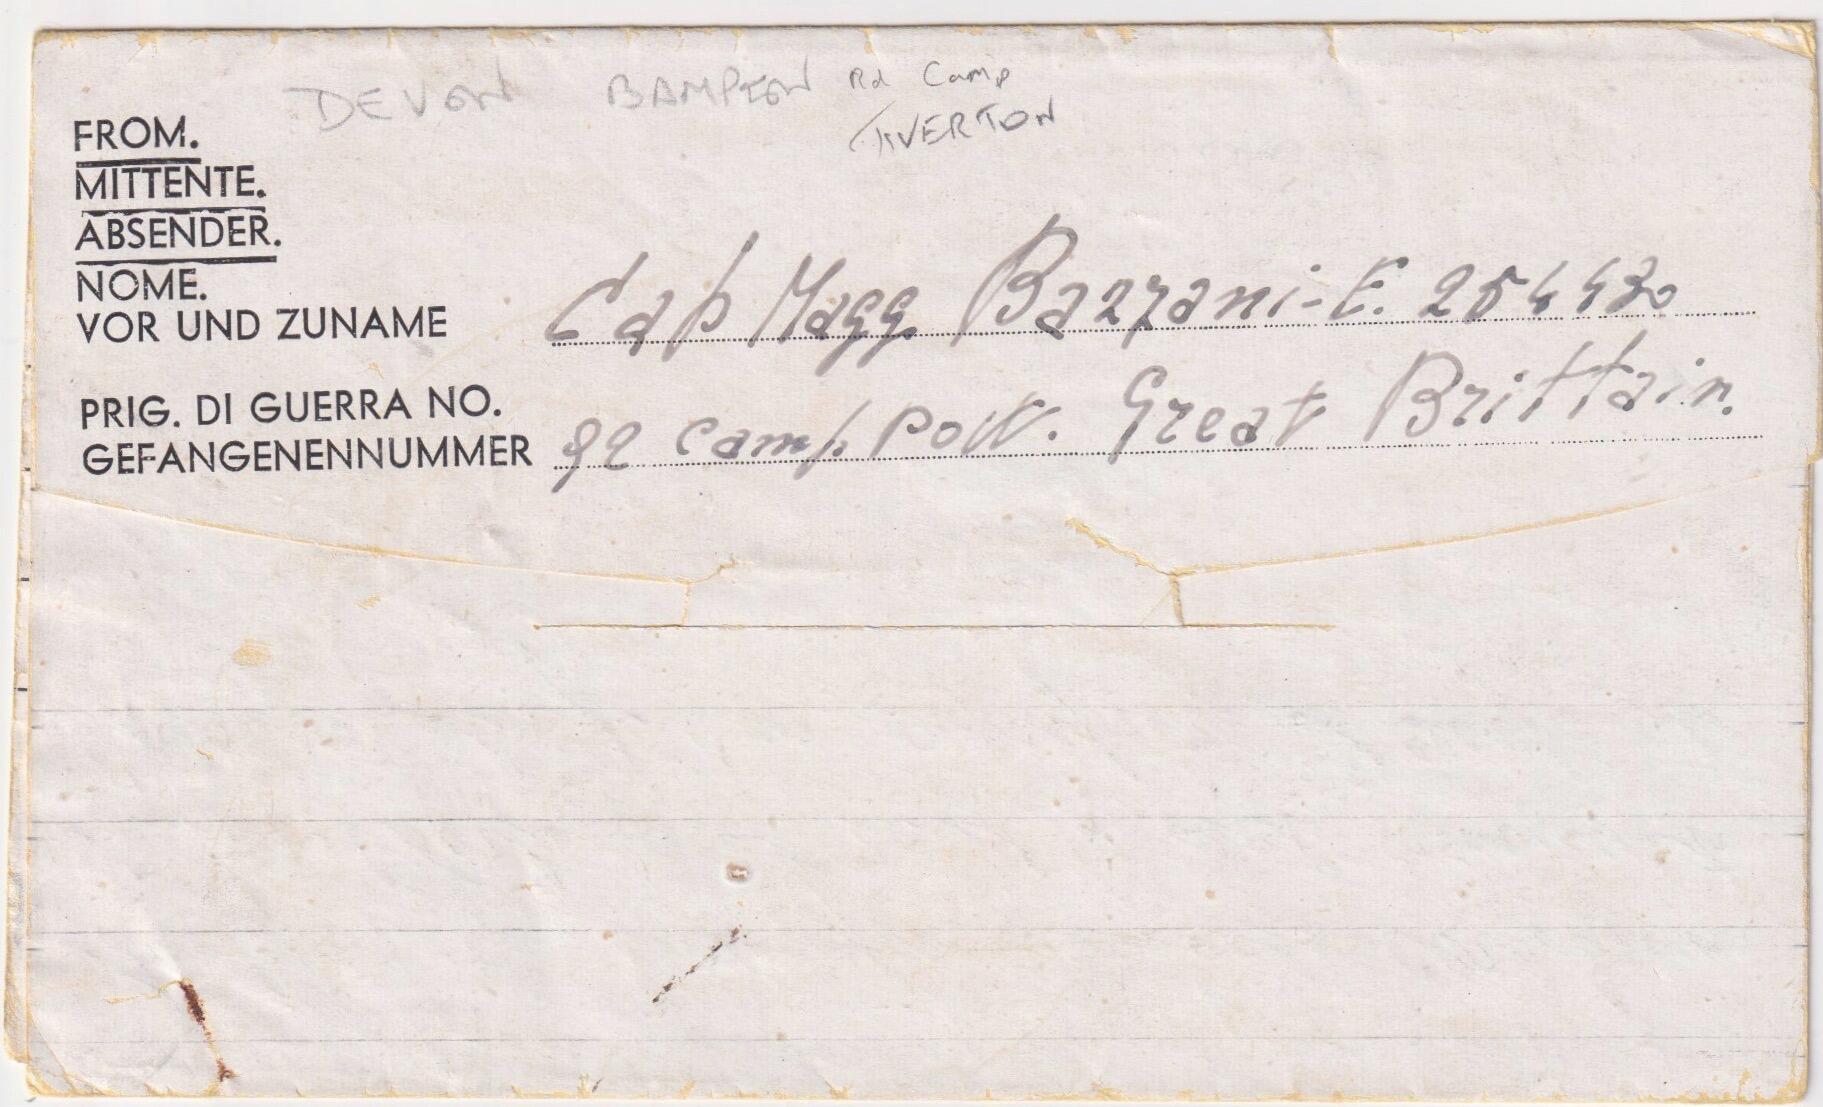 DEVON BAMPTON Rd Camp
TIVERTON
FROM.
MITTENTE.
ABSENDER.
NOME.
VOR UND ZUNAME Cap Magg. Bazzani - E. 254430
PRIG. DI GUERRA NO.
GEFANGENENNUMMER 92 Camp. PoW. Great Brittain.